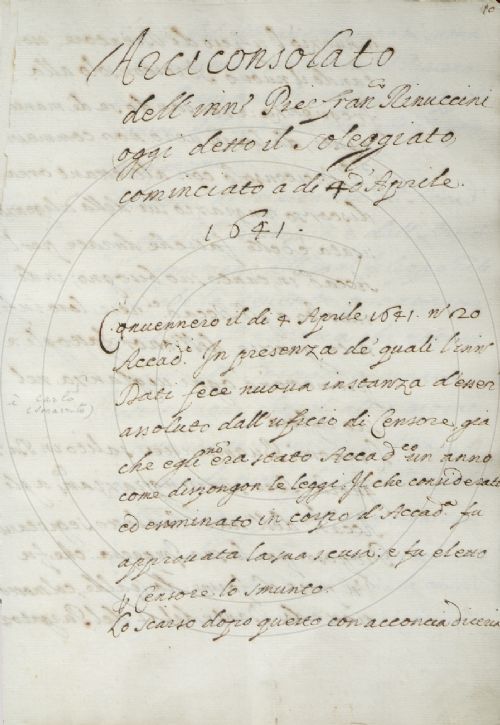 10
Arciconsolato
dell'inn.º Pier fran.º Rinuccini
oggi detto il Soleggiato
cominciato a di 4 d'Aprile.
1641.
Conuennero il di 4 Aprile 1641. n.º 20
Accad.ci In presenza de' quali l'inn.º
Dati fece nuoua instanza d'esser
assoluto dall'ufficio di Censore, gia
che egli non era stato Accad.co un anno
come dispongon le leggi. Il che considerato
ed esaminato in corpo d'Accad.a fu
approuata la sua scusa: e fu eletto
p Censore lo smunto.
Lo scarso dopo questo con acconcia diceria
è Carlo
(Smarrito)